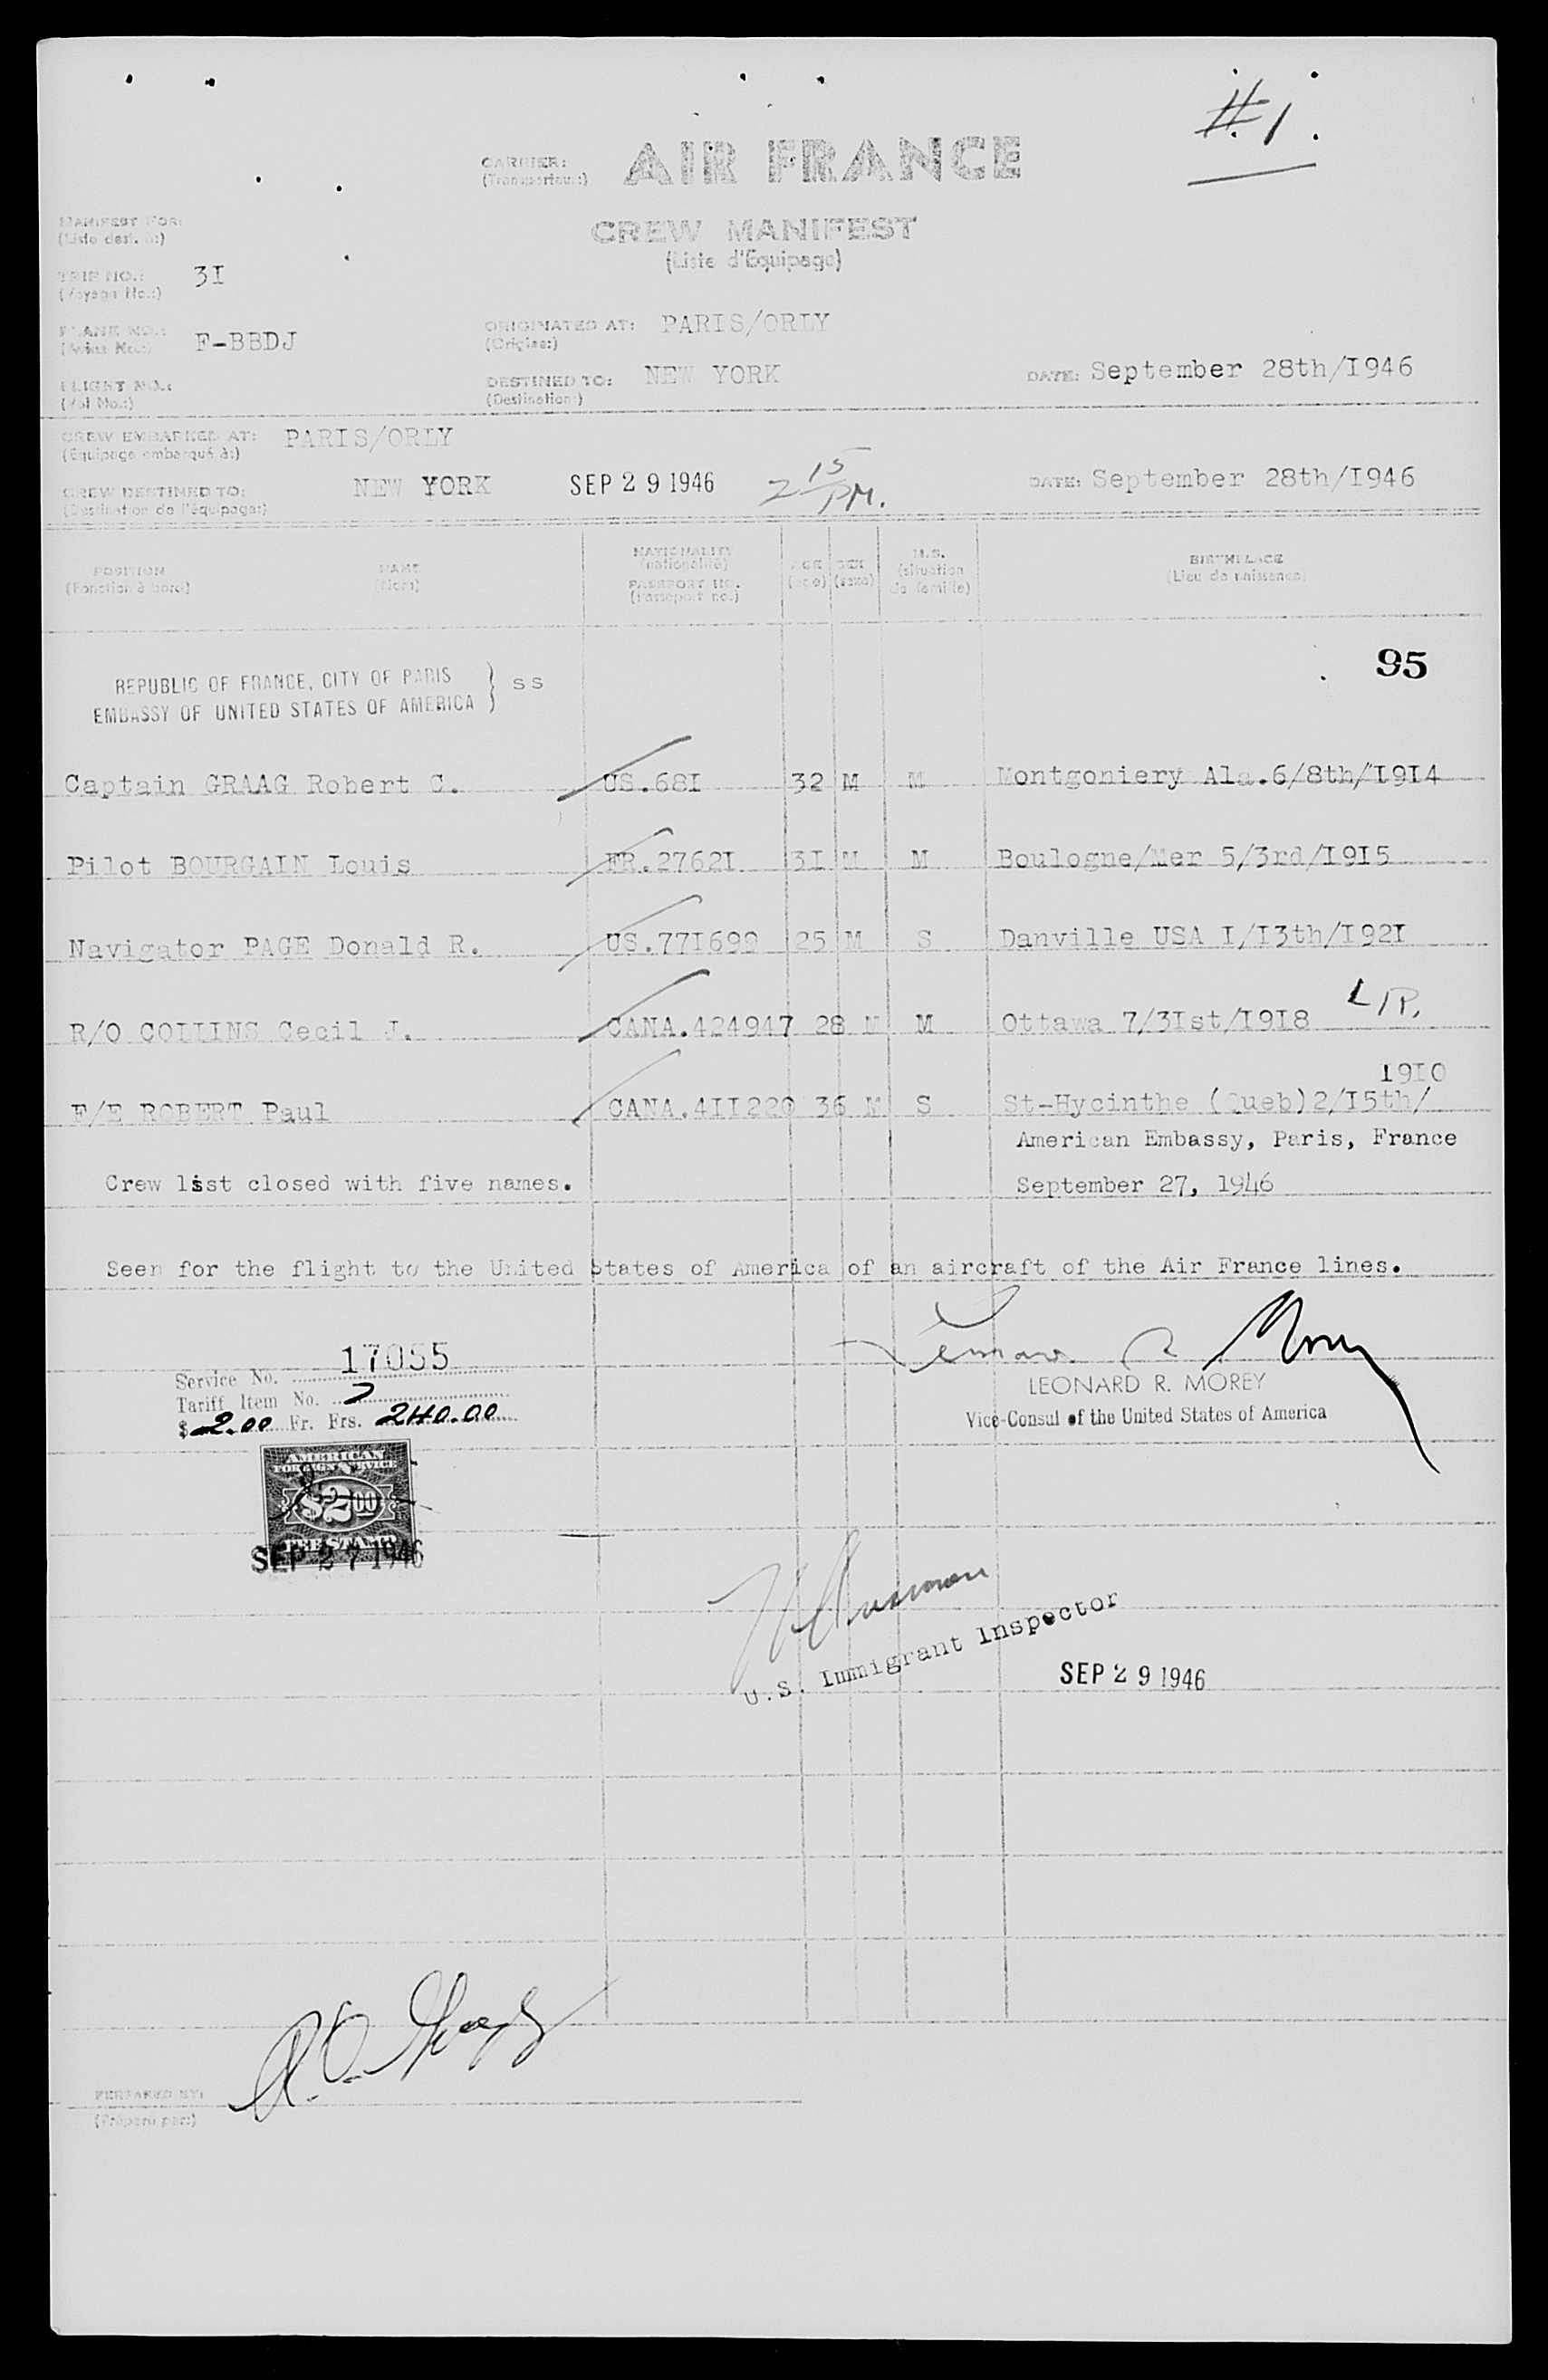 #1.
CARRIER: AIR FRANCE
(Transporteur:)
MANIFEST FOR:
(Liste dest. à:)
CREW MANIFEST
(Liste d'Équipage)
TRIP NO.: 3I
(Voyage No.:)
PLANE NO.: F-BBDJ
(Avion No.:)
ORIGINATED AT: PARIS/ORLY
(Origine:)
FLIGHT NO.:
(Vol No.:)
DESTINED TO: NEW YORK
(Destination:)
DATE: September 28th/I946
CREW EMBARKED AT: PARIS/ORLY
(Equipage embarqué à:)
CREW DESTINED TO: NEW YORK SEP 29 1946 2 15 PM. DATE: September 28th/I946
(Destination de l'équipage:)
POSITION NAME NATIONALITY AGE SEX M.S. BIRTHPLACE
(Fonction à bord) (Nom) (nationalité) (age) (sexe) (situation de famille) (Lieu de naissance)
PASSPORT NO.
(Passeport no.)
95
REPUBLIC OF FRANCE, CITY OF PARIS
EMBASSY OF UNITED STATES OF AMERICA } SS
Captain GRAAG Robert C. US.68I 32 M M Montgoniery Ala.6/8th/I9I4
Pilot BOURGAIN Louis FR.2762I 3I M M Boulogne/Mer 5/3rd/I9I5
Navigator PAGE Donald R. US.77I699 25 M S Danville USA I/I3th/I92I
R/O COLLINS Cecil J. CANA.424947 28 M M Ottawa 7/3Ist/I9I8
F/E ROBERT Paul CANA.4II220 36 M S St-Hycinthe (Queb)2/I5th/ 19I0
American Embassy, Paris, France
Crew list closed with five names. September 27, 1946
Seen for the flight to the United States of America of an aircraft of the Air France lines.
Service No. 17055
Tariff Item No. 7
$ 2.00 Fr. Frs. 240.00
Leonard R. Morey
LEONARD R. MOREY
Vice-Consul of the United States of America
AMERICAN
FOREIGN SERVICE
$2.00
FEE STAMP
SEP 27 1946
U.S. Immigrant Inspector
SEP 29 1946
PREPARED BY:
(Préparé par:)